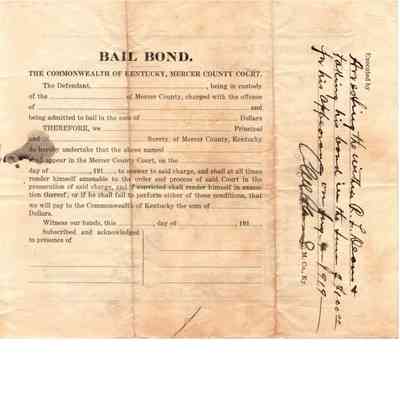 BAIL BOND.
THE COMMONWEALTH OF KENTUCKY, MERCER COUNTY COURT.
The Defendant, , being in custody
of the of Mercer County, charged with the offense
of and
being admitted to bail in the sum of Dollars
THEREFORE, we Principal
and Surety, of Mercer County, Kentucky
do hereby undertake that the above named
shall appear in the Mercer County Court, on the
day of , 191 , to answer to said charge, and shall at all times
render himself amenable to the order and process of said Court in the
prosecution of said charge, and if convicted shall render himself in execu-
tion thereof; or if he shall fail to perform either of these conditions, that
we will pay to the Commonwealth of Kentucky the sum of
Dollars.
Witness our hands, this , day of , 191
Subscribed and acknowledged
to presence of
Executed by
Arresting the within R. L.
taking his bond in the sum of $100.00
for his appearance on 1919
M. Co., Ky.